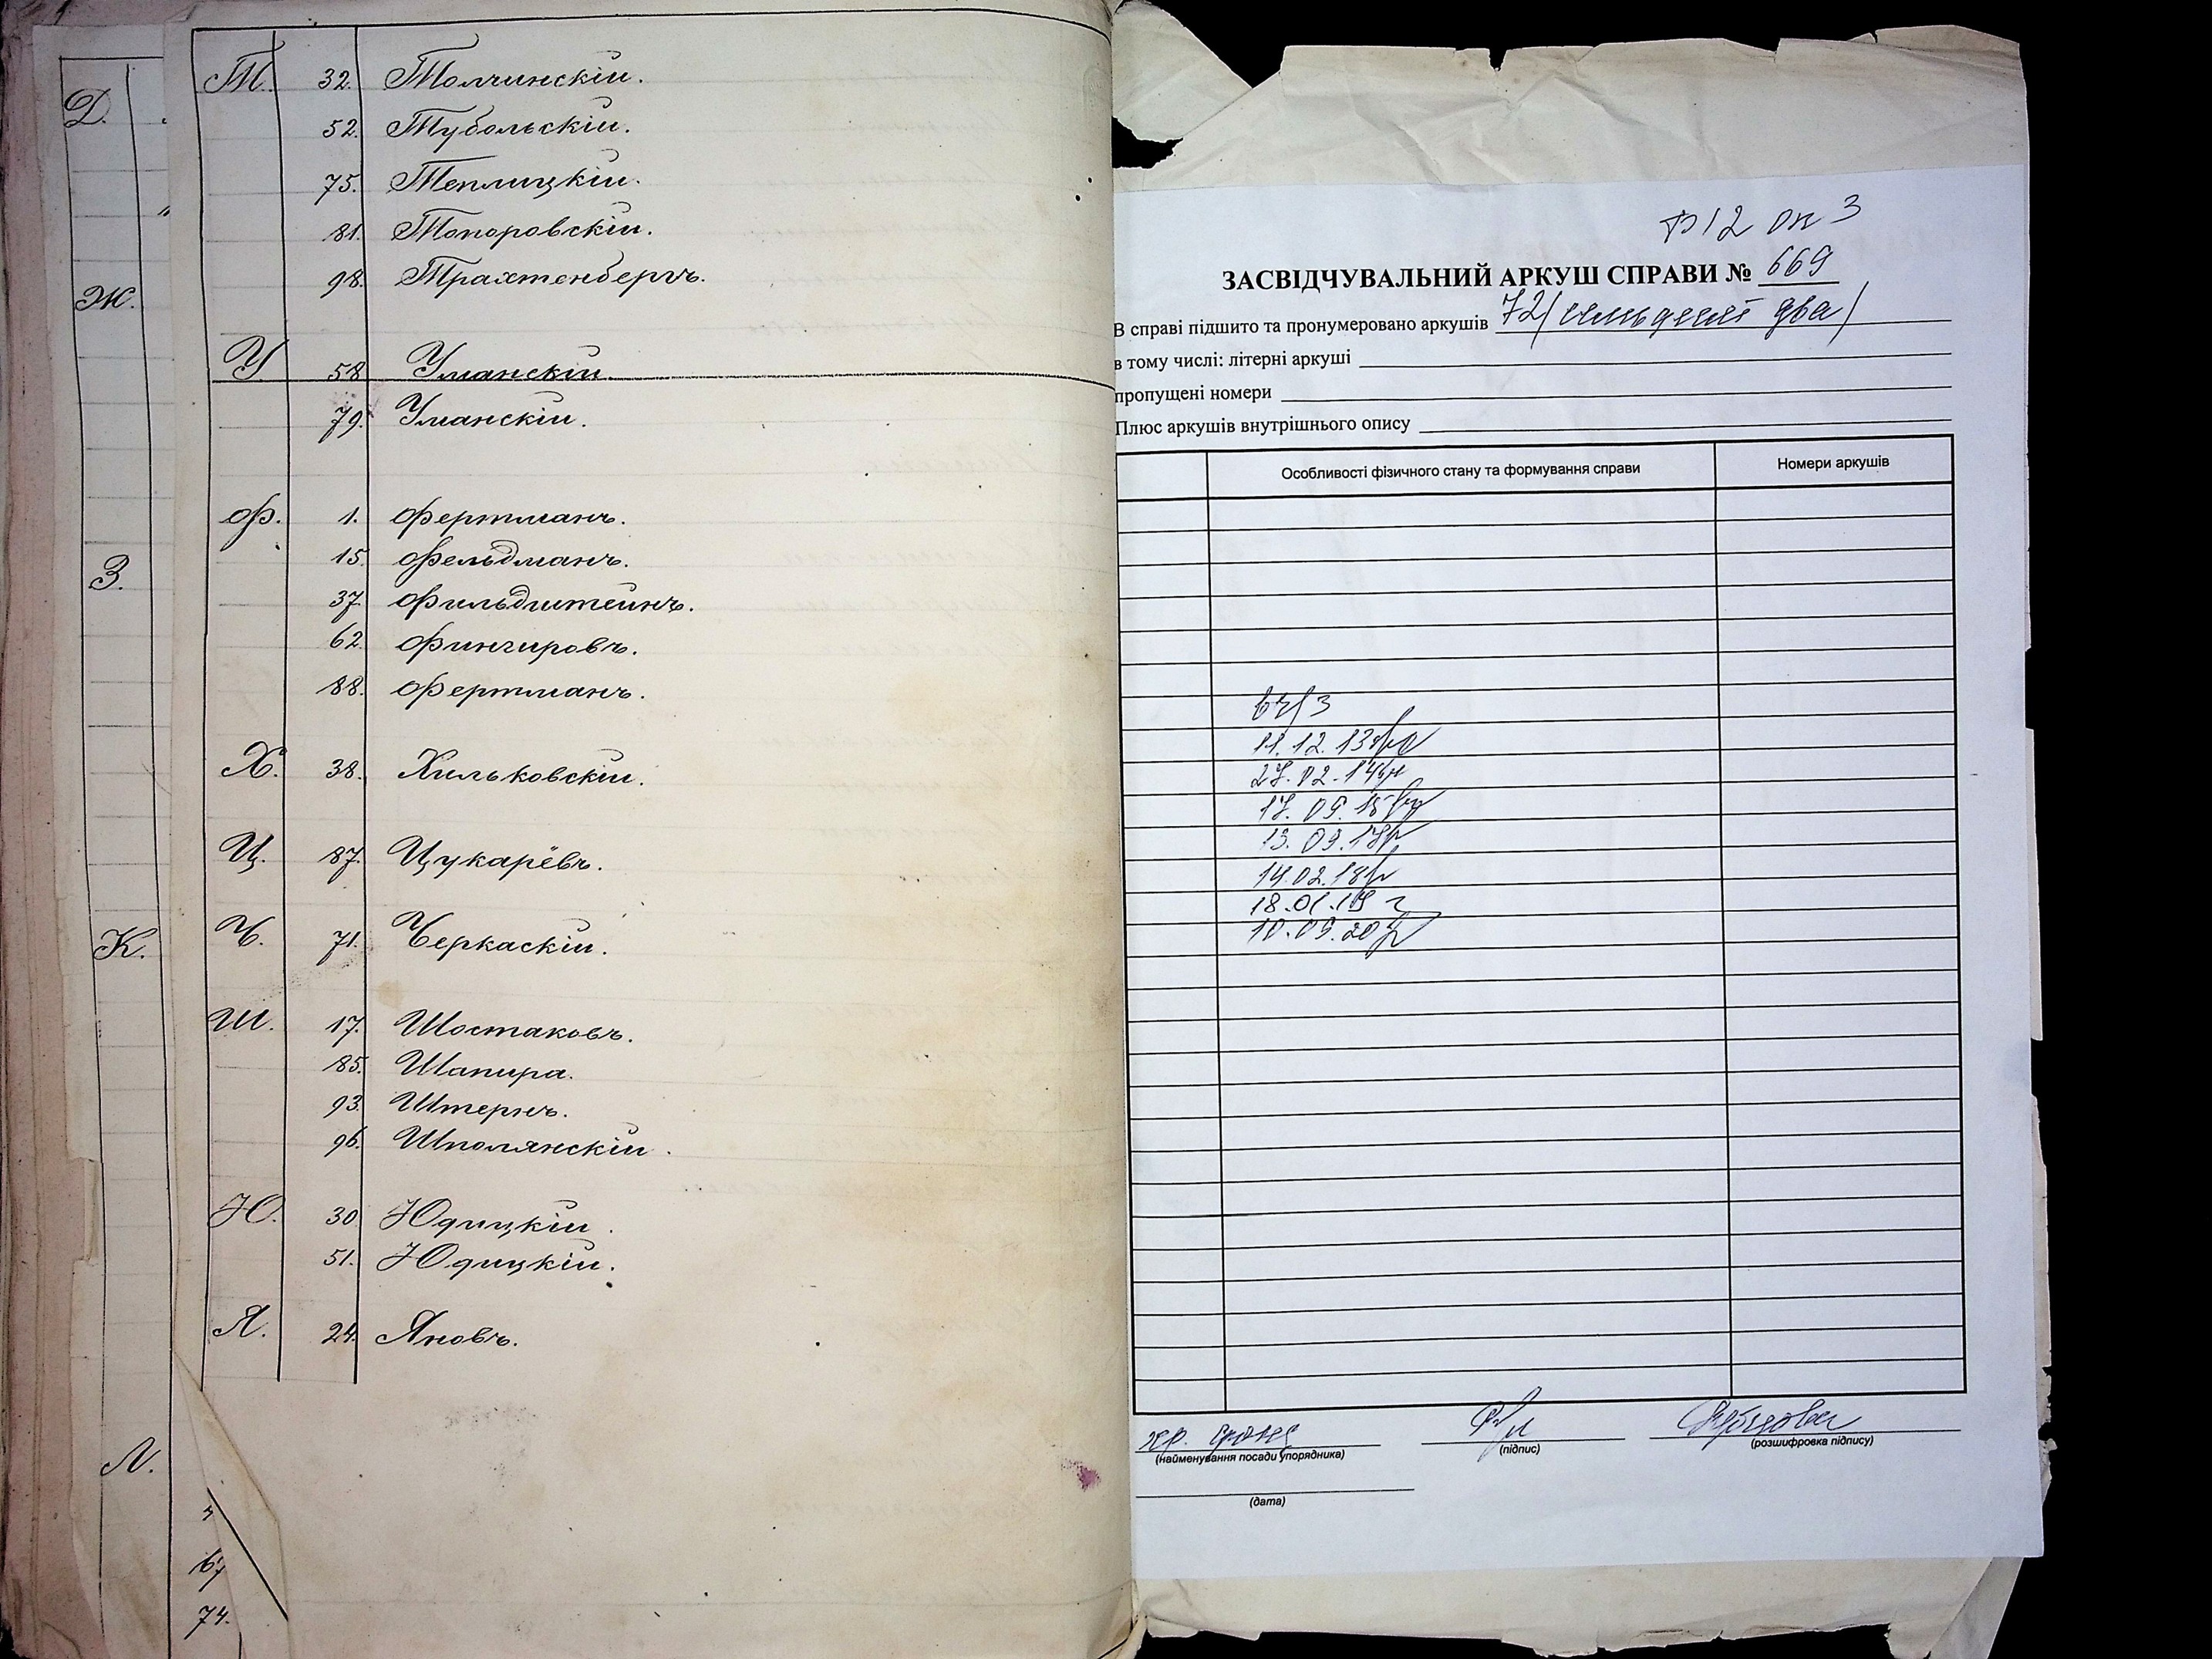 Д.
Ж.
З.
К.
Л.
67
74.
Т. 32. Толчинскій.
52. Тубольскій.
75. Теплицкій.
81. Топоровскій.
98. Трахтенбергъ.
У. 58. Уманскій.
79. Уманскій.
Ф. 1. Фертманъ.
15. Фельдманъ.
37. Фильдштейнъ.
62. Фингировъ.
88. Фертманъ.
Х. 38. Хильковскій.
Ц. 87. Цукарёвъ.
Ч. 71. Черкаскій.
Ш. 17. Шостаковъ.
85. Шапира.
93. Штернъ.
96. Шполянскій.
Ю. 30. Юдицкій.
51. Юдицкій.
Я. 24. Яновъ.
Ф12 оп 3
ЗАСВІДЧУВАЛЬНИЙ АРКУШ СПРАВИ № 669
В справі підшито та пронумеровано аркушів 72 (сімдесят два)
в тому числі: літерні аркуші
пропущені номери
Плюс аркушів внутрішнього опису
Особливості фізичного стану та формування справи Номери аркушів
11.12.13
27.02.14
17.09.15
14.02.18
18.01.19
10.09.20
(найменування посади упорядника) (підпис) (розшифровка підпису)
(дата)